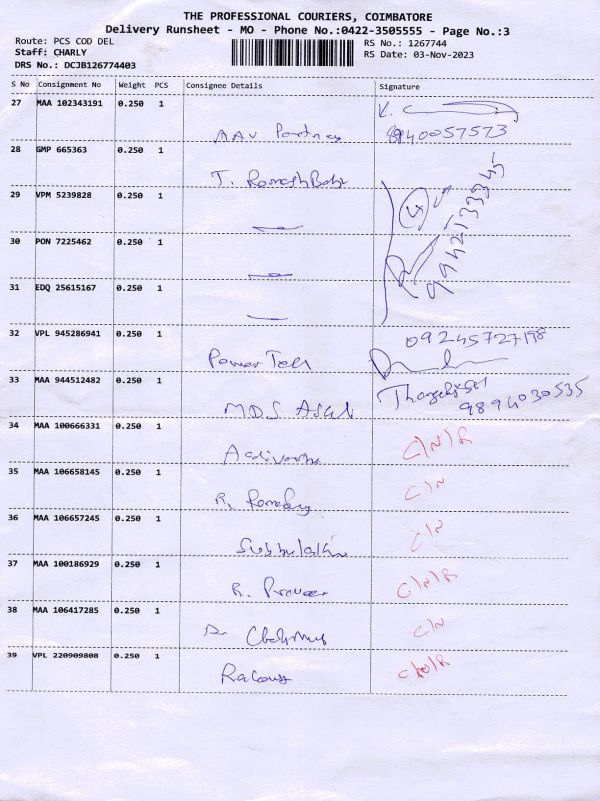 THE PROFESSIONAL COURIERS, COIMBATORE
Delivery Runsheet - MO - Phone No.:0422-3505555 - Page No.:3
Route: PCS COD DEL RS No.: 1267744
Staff: CHARLY RS Date: 03-Nov-2023
DRS No.: DCJB126774403
S No Consignment No Weight PCS Consignee Details Signature
27 MAA 102343191 0.250 1
AAV Partners 8940057573
28 GMP 665363 0.250 1
T. Ramesh Babu
29 VPM 5239828 0.250 1
4
9942133345
30 PON 7225462 0.250 1
31 EDQ 25615167 0.250 1
32 VPL 945286941 0.250 1
Power Tech
33 MAA 944512482 0.250 1
MDS 9894030535
34 MAA 100666331 0.250 1
C/N/R
35 MAA 106658145 0.250 1
R. C/N
36 MAA 106657245 0.250 1
C/N
37 MAA 100186929 0.250 1
R. Praveen C/N/R
38 MAA 106417285 0.250 1
C/N
39 VPL 220909808 0.250 1